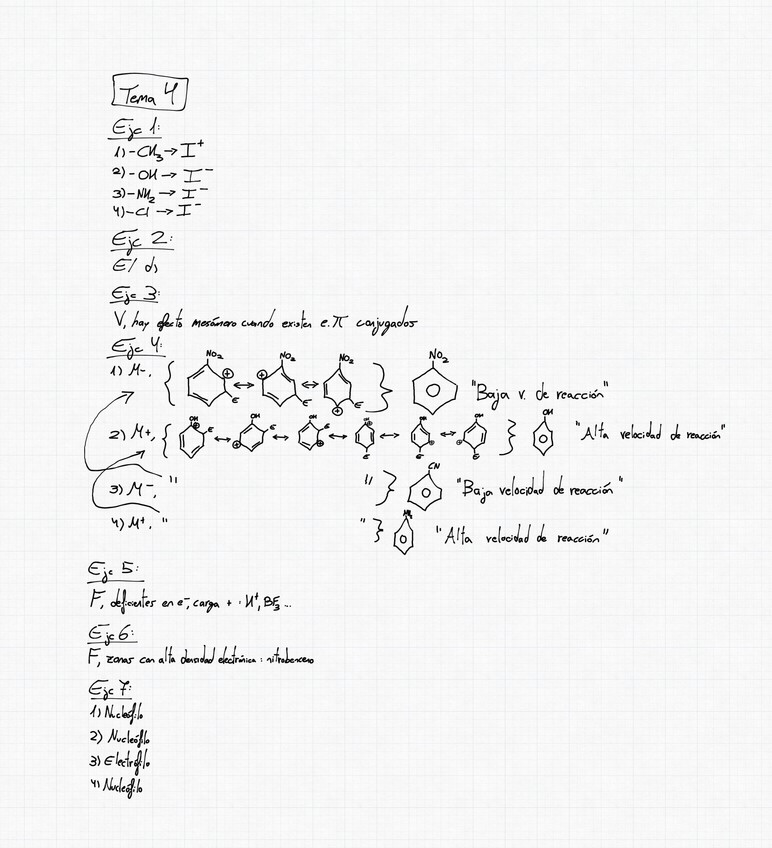 Tema 4
Ejc 1:
1) -CH₃ → I⁺
2) -OH → I⁻
3) -NH₂ → I⁻
4) -Cl → I⁻
Ejc 2:
E/ d)
Ejc 3:
V, hay efecto mesómero cuando existen e.π conjugados
Ejc 4:
1) M-, { NO₂ ⊕ E ↔ NO₂ ⊕ E ↔ NO₂ ⊕ E } NO₂ "Baja v. de reacción"
2) M+, { OH ⊕ E ↔ OH ⊕ E ↔ OH ⊕ E ↔ OH ⊕ E ↔ OH ⊕ E ↔ OH ⊕ E } OH "Alta velocidad de reacción"
3) M-, " " } CN "Baja velocidad de reacción"
4) M+, " " } NH₂ "Alta velocidad de reacción"
Ejc 5:
F, deficientes en e⁻, carga + : H⁺, BF₃...
Ejc 6:
F, zonas con alta densidad electrónica: nitrobenceno
Ejc 7:
1) Nucleófilo
2) Nucleófilo
3) Electrófilo
4) Nucleófilo